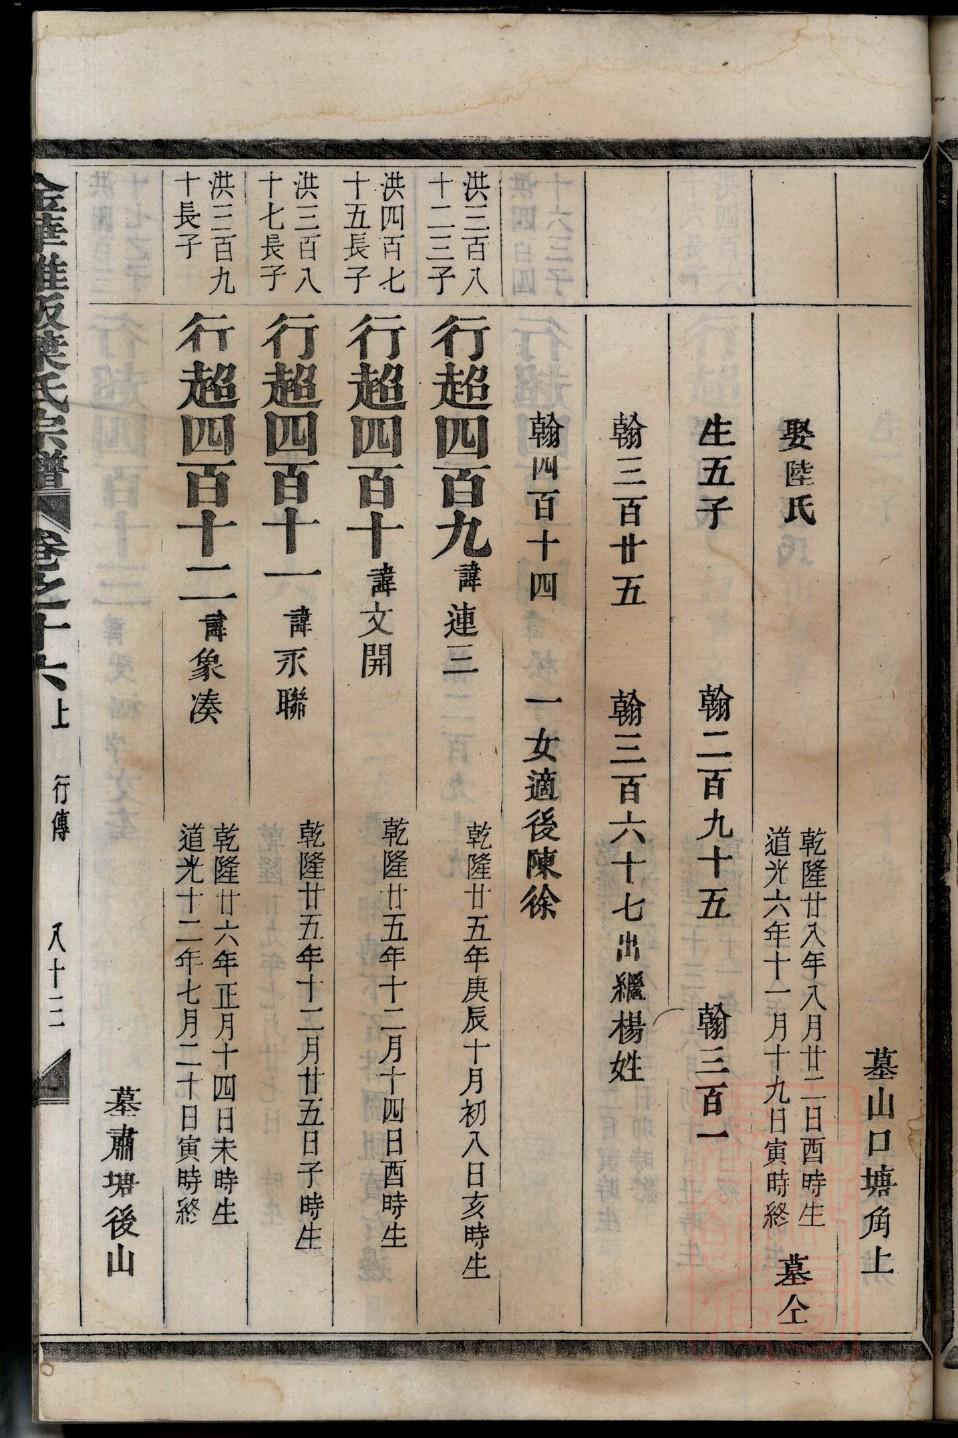 墓山口塘角上
娶陸氏
乾隆廿八年八月廿二日酉時生
道光六年十一月十九日寅時終
墓仝
生五子
翰二百九十五
翰三百一
翰三百廿五
翰三百六十七出繼楊姓
翰四百十四
一女適後陳徐
洪三百八
十二三子
行超四百九
諱連三
乾隆廿五年庚辰十月初八日亥時生
洪四百七
十五長子
行超四百十
諱文開
乾隆廿五年十二月十四日酉時生
洪三百八
十七長子
行超四百十一
諱永聯
乾隆廿五年十二月廿五日子時生
洪三百九
十長子
行超四百十二
諱象湊
乾隆廿六年正月十四日未時生
道光十二年七月二十日寅時終
墓肅塘後山
葉氏宗譜
卷之十六上
行傳
八十三